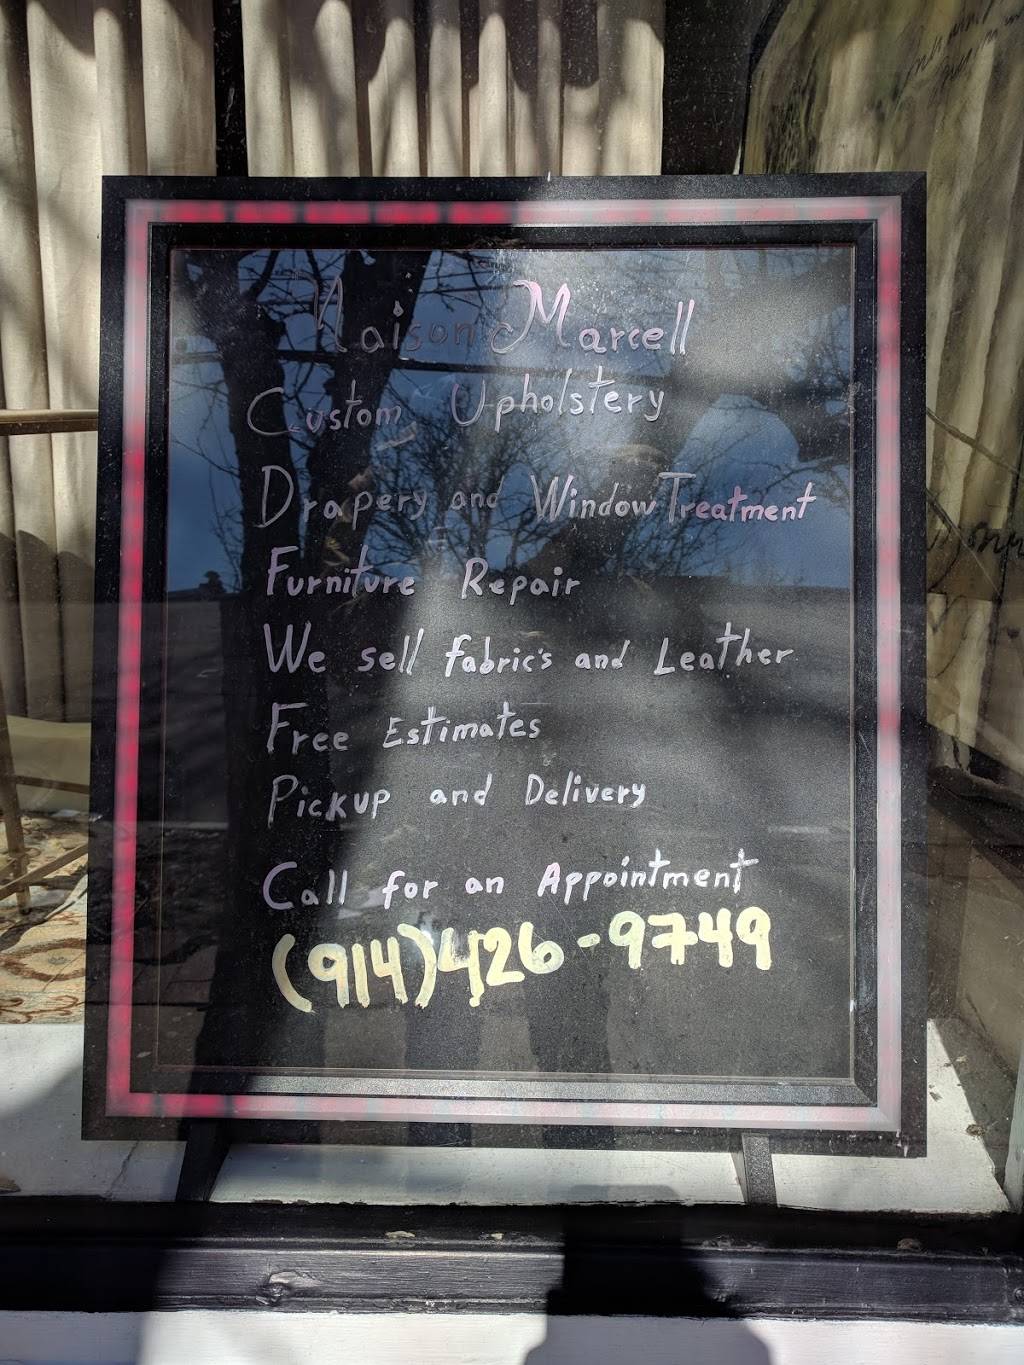 Maison Marcell
Custom Upholstery
Drapery and Window Treatment
Furniture Repair
We sell fabric's and Leather
Free Estimates
Pickup and Delivery
Call for an Appointment
(914)426-9749